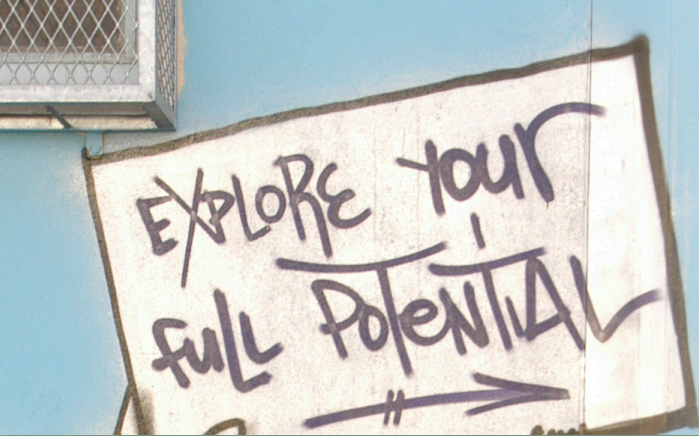 EXPLORE YOUR
FULL POTENTIAL